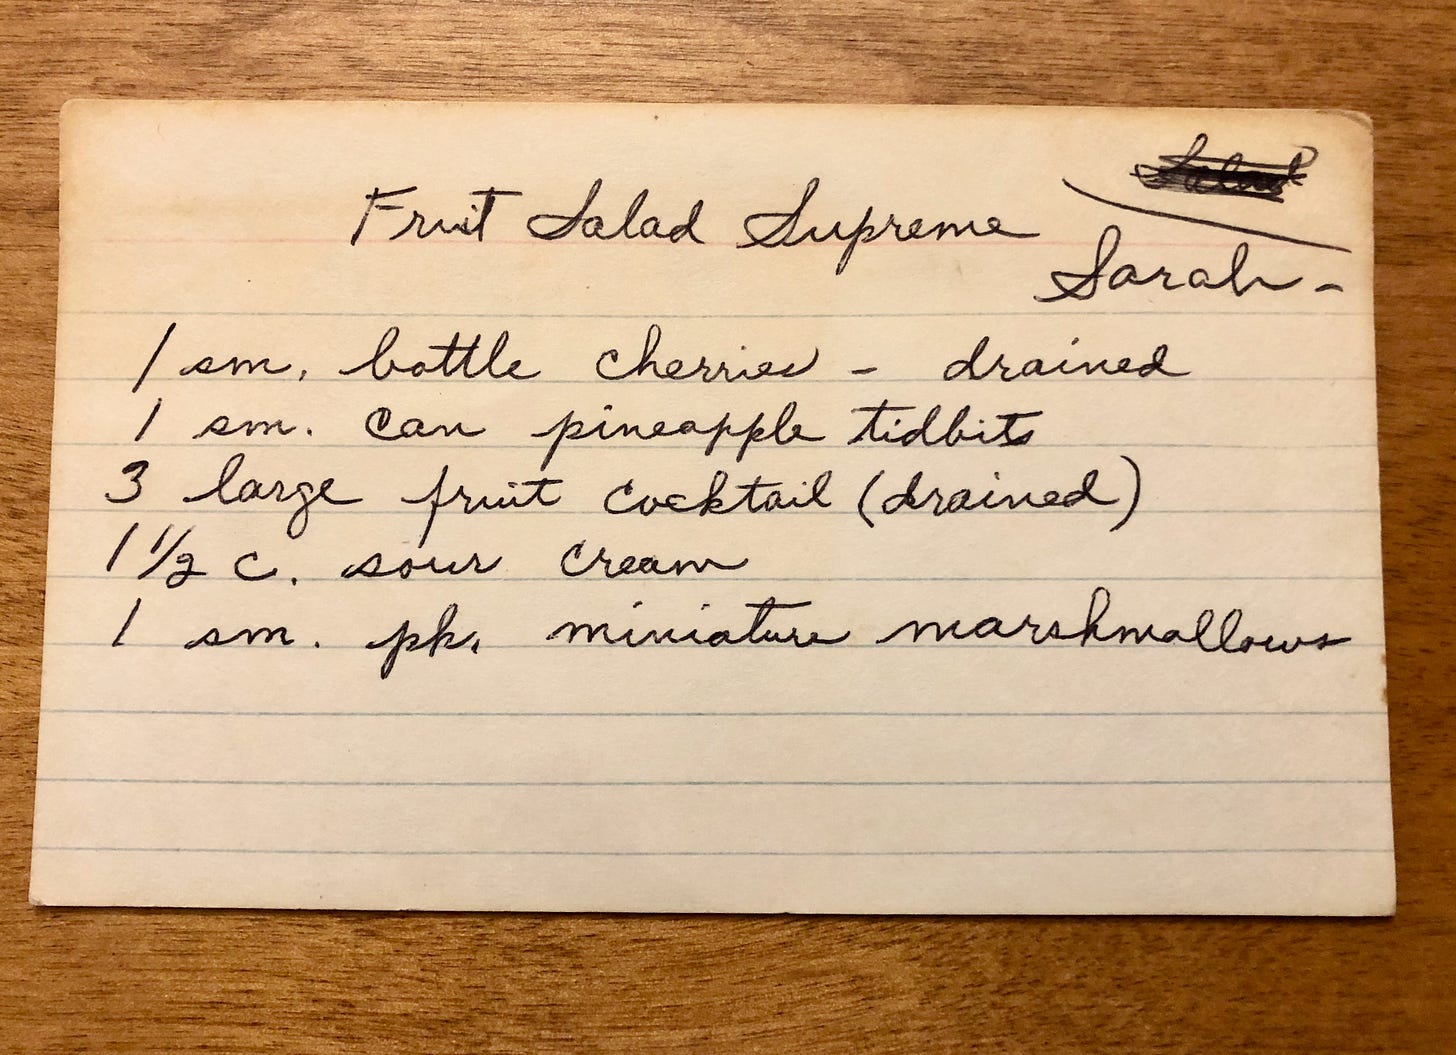 Fruit Salad Supreme
Sarah -
1 sm. bottle cherries - drained
1 sm. can pineapple tidbits
3 large fruit cocktail (drained)
1 1/2 c. sour cream
1 sm. pk. miniature marshmallows